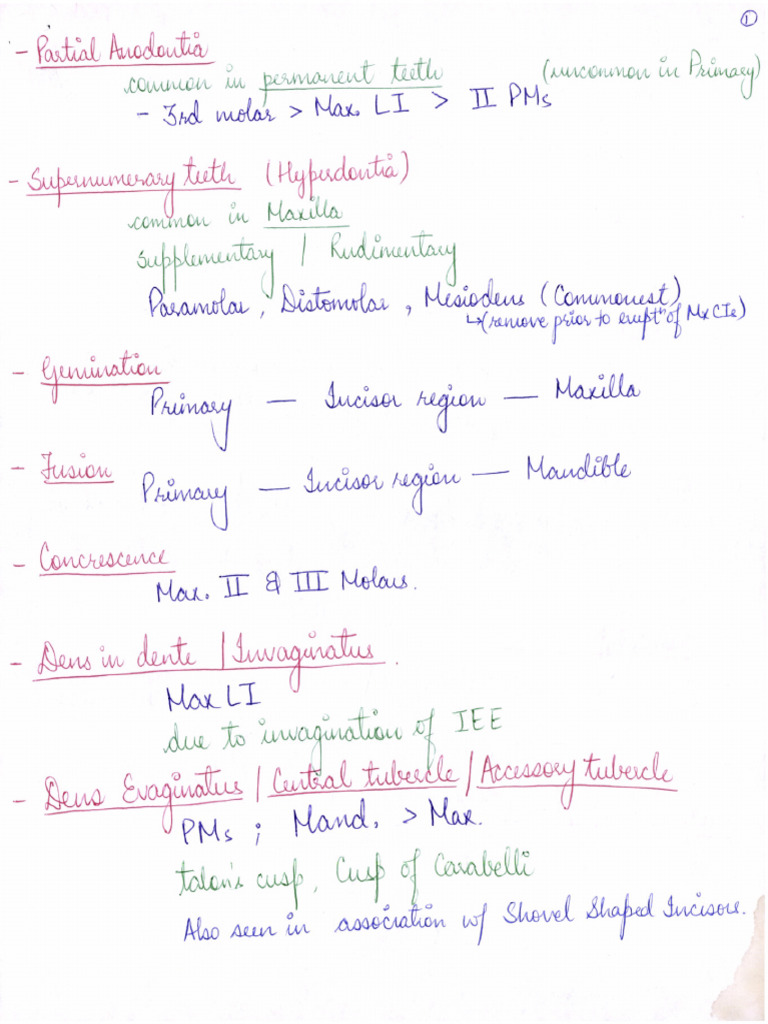 ①
- Partial Anodontia
common in permanent teeth (uncommon in Primary)
- 3rd molar > Max. LI > II PMs
- Supernumerary teeth (Hyperdontia)
common in Maxilla
supplementary / Rudimentary
Paramolar, Distomolar, Mesiodens (Commonest)
↳(remove prior to eruptⁿ of Mx CIs)
- Gemination
Primary — Incisor region — Maxilla
- Fusion
Primary — Incisor region — Mandible
- Concrescence
Max. II & III Molars.
- Dens in dente / Invaginatus.
Max LI
due to invagination of IEE
- Dens Evaginatus / Central tubercle / Accessory tubercle
PMs ; Mand. > Max.
talon's cusp, Cusp of Carabelli
Also seen in association w/ Shovel Shaped Incisors.